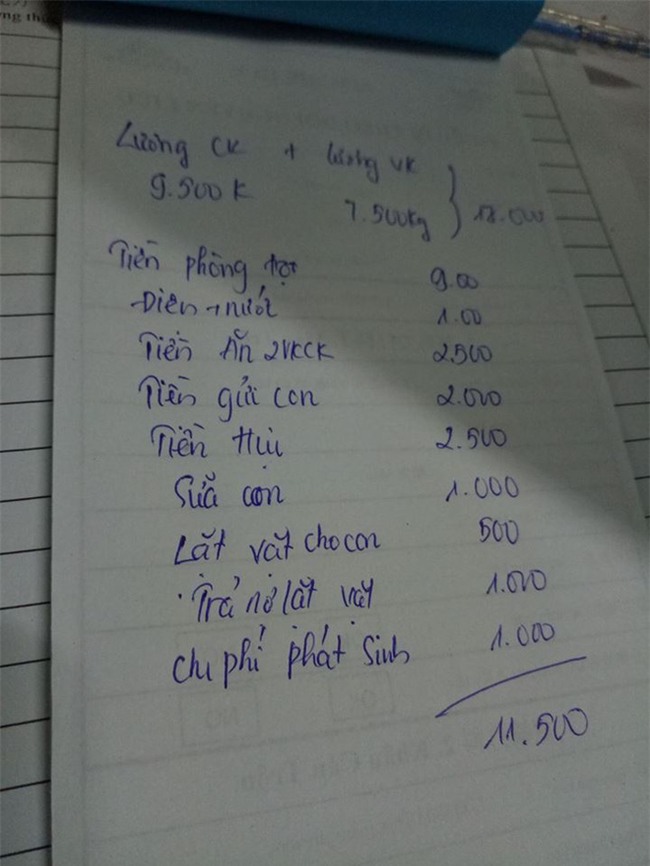 Lương CK + lương VK
9.500K 7.500Kg } 18.000
Tiền phòng trọ 9.00
Điên + nước 1.00
Tiền Ăn 2VKCK 2.500
Tiền gửi con 2.000
Tiền Hụi 2.500
Sữa con 1.000
Lăt vặt cho con 500
Trả nợ lăt vặt 1.000
Chi phí phát Sinh 1.000
11.500
OK
NO